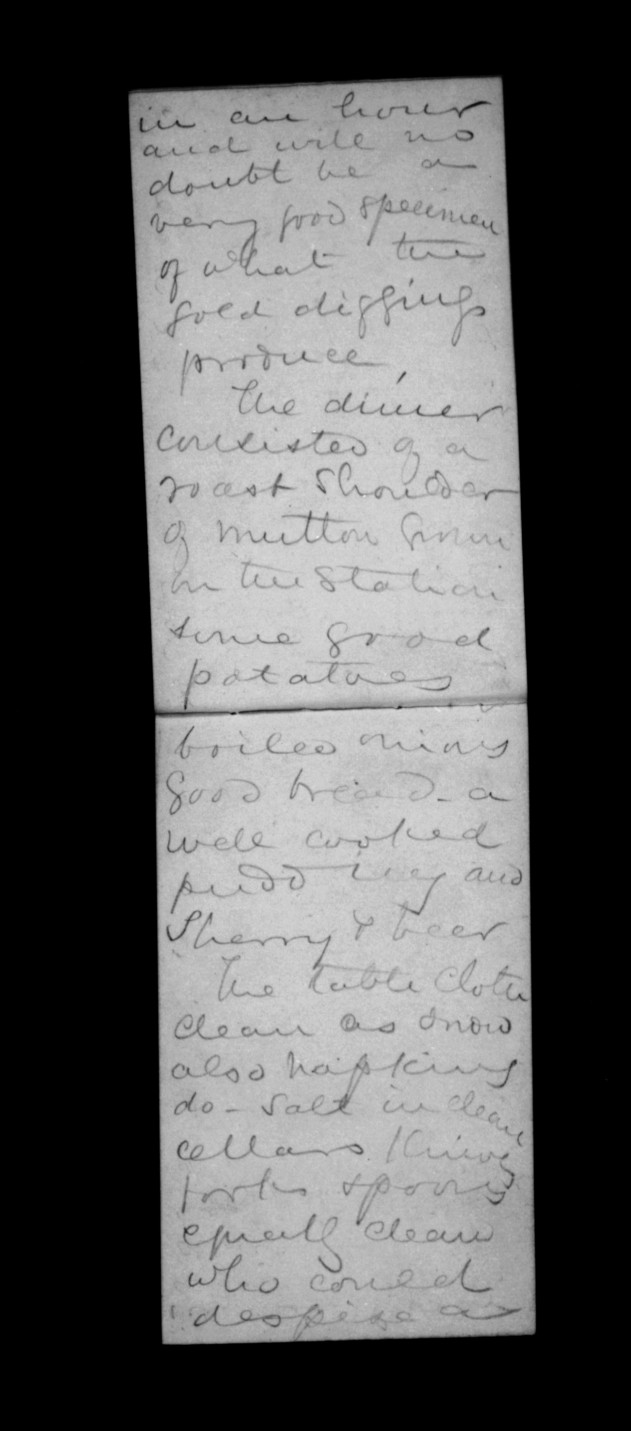 in an hour
and will no
doubt be a
very good specimen
of what the
gold diggings
produce,
The dinner
consisted of a
roast Shoulder
of mutton Grown
on the Station
some good
potatoes
boiled onions
good bread - a
well cooked
pudding and
Sherry & beer
The table cloth
clean as snow
also napkins
do - Salt in clean
cellars Knives
forks spoons
equally clean
who could
despise a